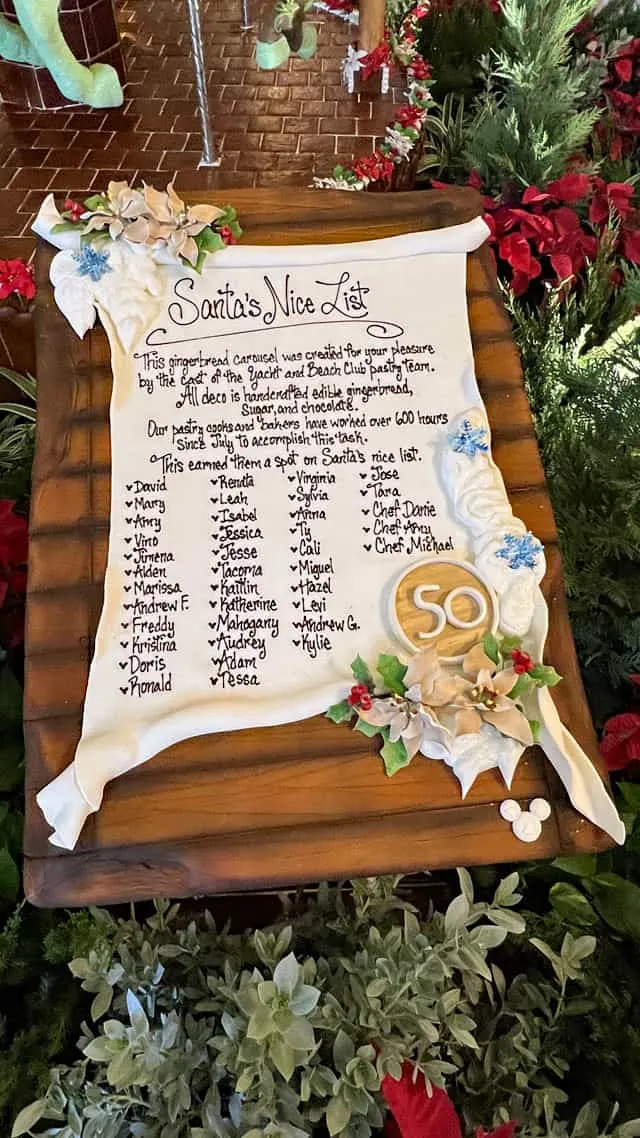 Santa's Nice List
This gingerbread carousel was created for your pleasure
by the cast of the Yacht and Beach Club pastry team.
All deco is handcrafted edible gingerbread,
Sugar, and chocolate.
Our pastry cooks and bakers have worked over 600 hours
since July to accomplish this task.
This earned them a spot on Santa's nice list.
David
Mary
Amy
Vino
Jimena
Aiden
Marissa
Andrew F.
Freddy
Kristina
Doris
Ronald
Renata
Leah
Isabel
Jessica
Jesse
Tacoma
Kaitlin
Katherine
Mahogany
Audrey
Adam
Tessa
Virginia
Sylvia
Anna
Ty
Cali
Miguel
Hazel
Levi
Andrew G.
Kylie
Jose
Tara
Chef Danie
Chef Amy
Chef Michael
50